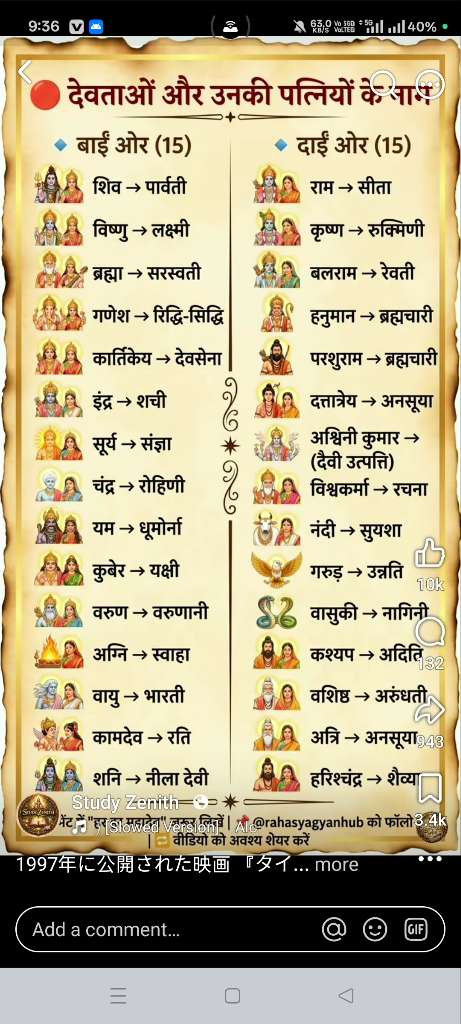 9:36
63.0 KB/S
Vo 5GD VoLTEG
5G
40%
देवताओं और उनकी पत्नियों के नाम
बाईं ओर (15)
शिव → पार्वती
विष्णु → लक्ष्मी
ब्रह्मा → सरस्वती
गणेश → रिद्धि-सिद्धि
कार्तिकेय → देवसेना
इंद्र → शची
सूर्य → संज्ञा
चंद्र → रोहिणी
यम → धूमोर्ना
कुबेर → यक्षी
वरुण → वरुणानी
अग्नि → स्वाहा
वायु → भारती
कामदेव → रति
शनि → नीला देवी
दाईं ओर (15)
राम → सीता
कृष्ण → रुक्मिणी
बलराम → रेवती
हनुमान → ब्रह्मचारी
परशुराम → ब्रह्मचारी
दत्तात्रेय → अनसूया
अश्विनी कुमार →
(दैवी उत्पत्ति)
विश्वकर्मा → रचना
नंदी → सुयशा
गरुड़ → उन्नति
वासुकी → नागिनी
कश्यप → अदिति
वशिष्ठ → अरुंधती
अत्रि → अनसूया
हरिश्चंद्र → शैव्या
10k
132
943
3.4k
Study Zenith
[Slowed Version]
जरूर लिखें | @rahasyagyanhub को फॉलो
| वीडियो को अवश्य शेयर करें
1997年に公開された映画 『タイ... more
Add a comment...
GIF